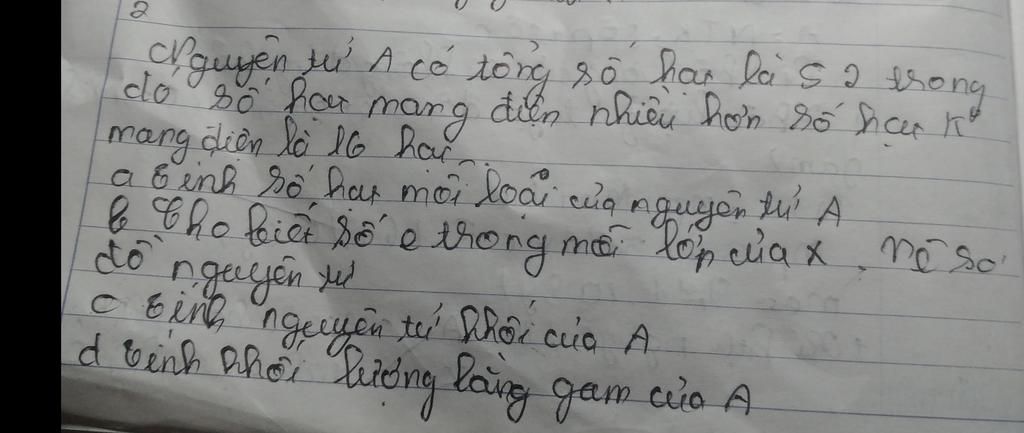 2
Nguyên tử A có tổng số hạt là 52 trong
đó số hạt mang điện nhiều hơn số hạt k⁰
mang điện là 16 hạt
a tính số hạt mỗi loại của nguyên tử A
b Cho biết số e trong mỗi lớp của X, vẽ sơ
đồ nguyên tử
c tính nguyên tử khối của A
d tính khối lượng bằng gam của A